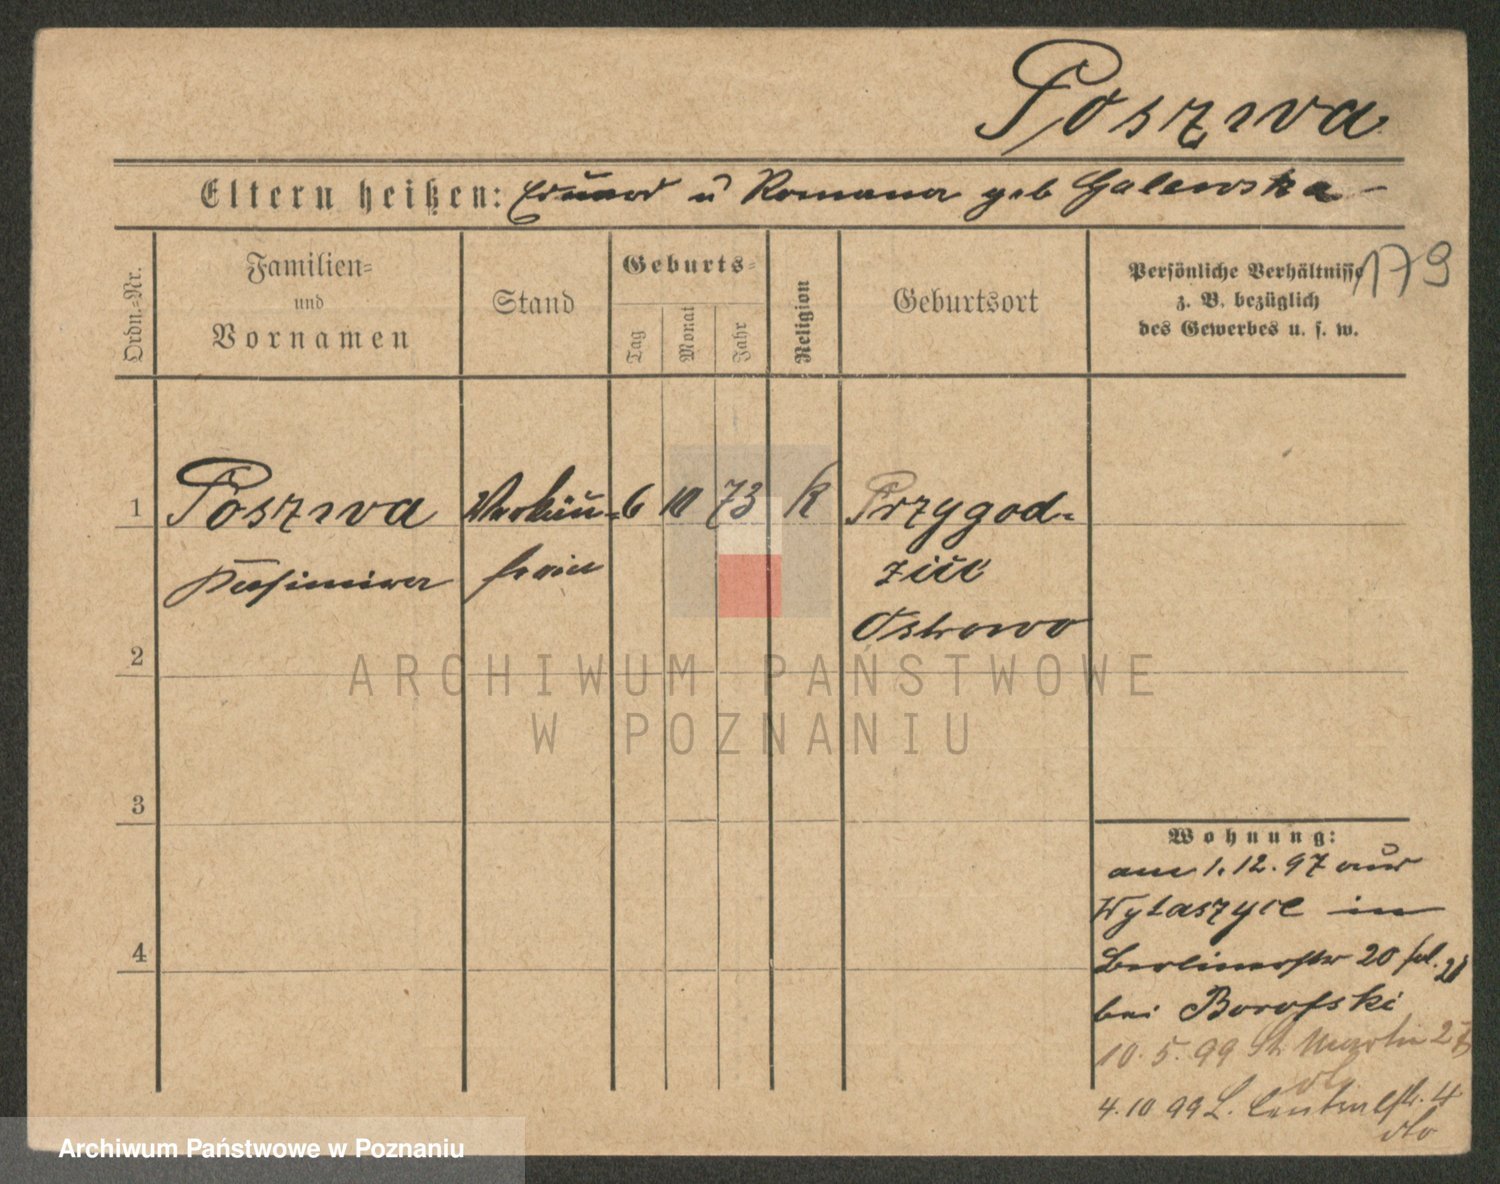 Poszwa
Eltern heißen: Eduard u Romana geb Galewska
179
Ordn.-Nr.
Familien-
und
Vornamen
Stand
Geburts-
Tag
Monat
Jahr
Religion
Geburtsort
Persönliche Verhältnisse
z. B. bezüglich
des Gewerbes u. s. w.
1 Poszwa Verkäu- 6 10 73 k Przygod-
Kasimira ferin zice
Ostrowo
2
ARCHIWUM PAŃSTWOWE
W POZNANIU
3
4
Wohnung:
am 1.12.97 aus
Wytaszyce in
Berlinerstr 20
bei Borofski
10.5.99 St. Martin
4.10 99 L. Centralstr. 4
Archiwum Państwowe w Poznaniu